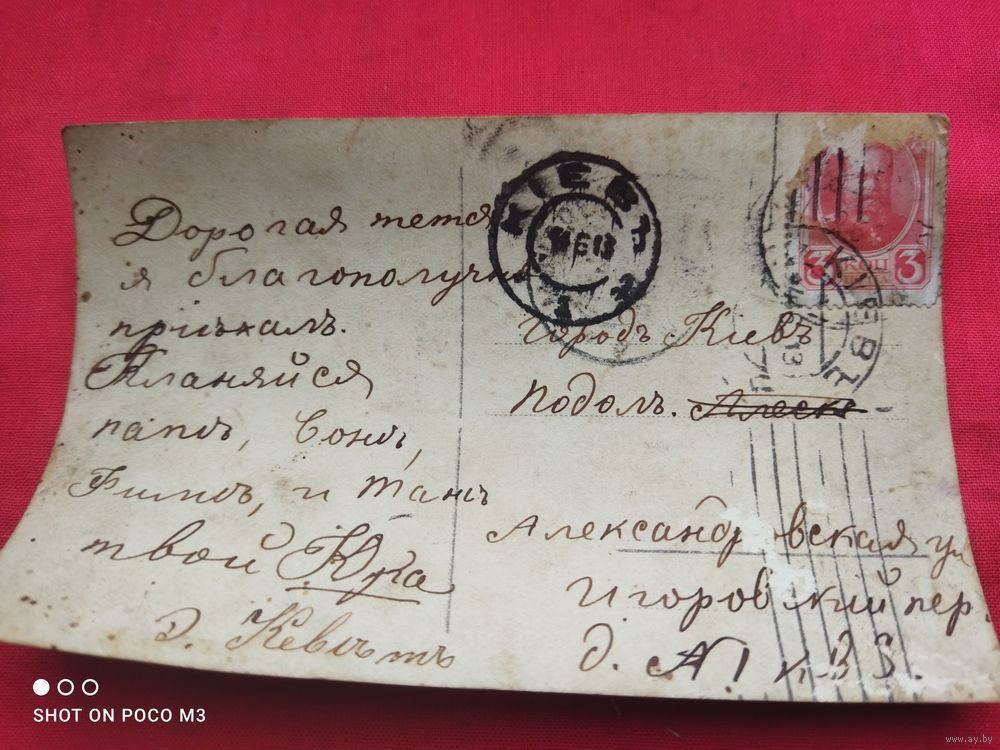 Дорогая тетя
я благополучно
пріѣхалъ.
Кланяйся
папѣ, Сонѣ,
Фимѣ, и Танѣ
твой Юка
Д. Кевѣтъ
КІЕВЪ
13
1
городъ Кіевъ
Подолъ.
Александровская ул
Игоровскій пер.
д. №1 кв 3.
3 КОП 3
КІЕВЪ
SHOT ON POCO M3
www.ay.by